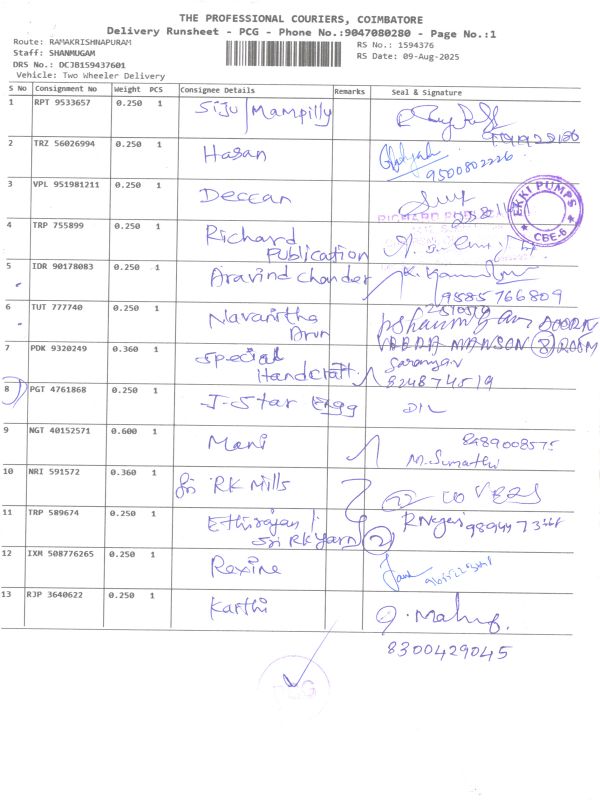 THE PROFESSIONAL COURIERS, COIMBATORE
Delivery Runsheet - PCG - Phone No.:9047080280 - Page No.:1
Route: RAMAKRISHNAPURAM RS No.: 1594376
Staff: SHANMUGAM RS Date: 09-Aug-2025
DRS No.: DCJB159437601
Vehicle: Two Wheeler Delivery
S No Consignment No Weight PCS Consignee Details Remarks Seal & Signature
1 RPT 9533657 0.250 1 Siju / Mampilly
2 TRZ 56026994 0.250 1 Hasan 9500802226
3 VPL 951981211 0.250 1 Deccan
EKKI PUMPS CBE-6
4 TRP 755899 0.250 1 Richard Publication
5 IDR 90178083 0.250 1 Aravind Chander
9585766809
6 TUT 777740 0.250 1 Navanitha Arun
7 PDK 9320249 0.360 1 Special Handcraft Saranya.V
8248774519
8 PGT 4761868 0.250 1 J-Star Egg
9 NGT 40152571 0.600 1 Mani 8489008575
M.Sumathi
10 NRI 591572 0.360 1 Sri RK Mills
11 TRP 589674 0.250 1 Ethirajan /
Sri RK Yarn 2
12 IXM 508776265 0.250 1 Rexine
13 RJP 3640622 0.250 1 Karthi
8300429045